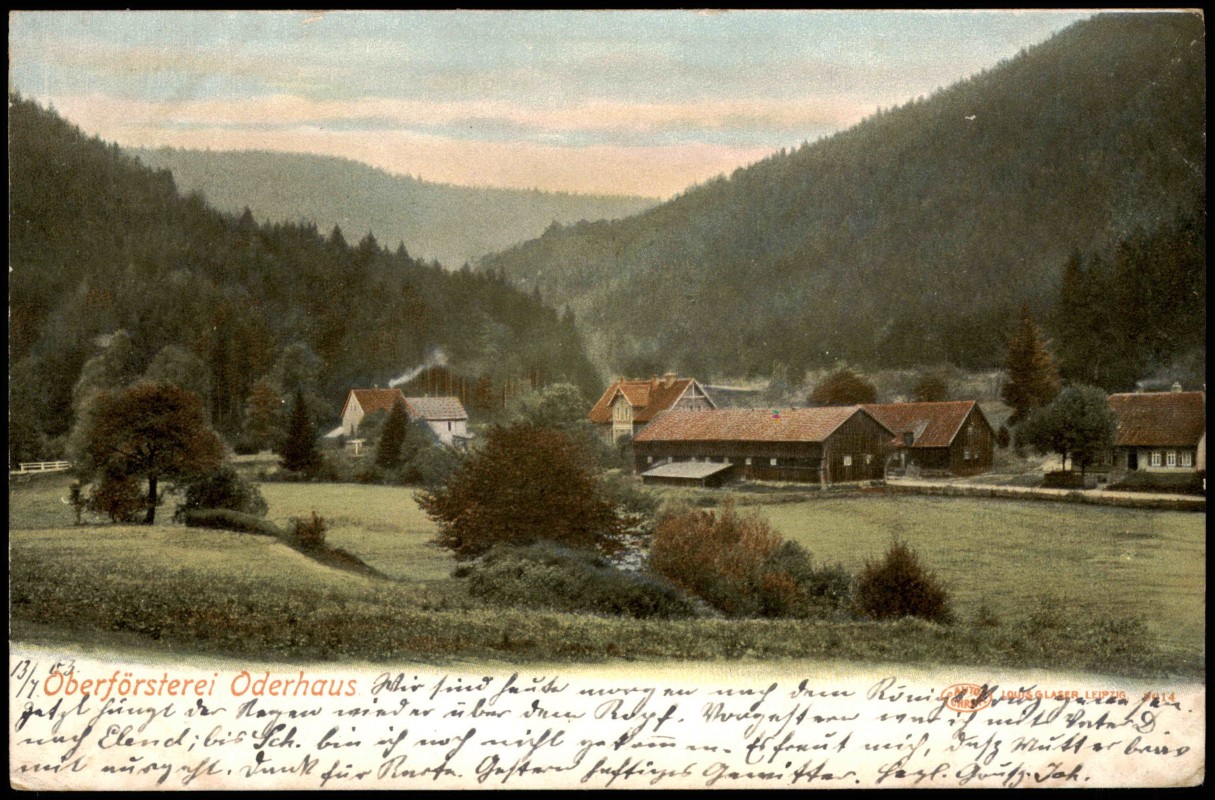 13/7 03.
Oberförsterei Oderhaus
AUTO CHROM LOUIS GLASER LEIPZIG
Wir sind heute morgen nach dem König gewesen.
Jetzt hängt der Regen wieder über dem Kopf. Vorgestern war ich mit Vater
nach Elend; bis Sch. bin ich noch nicht gekommen. Es freut mich, daß Mutter brav
mit ausgeht. Dank für Karte. Gestern heftiges Gewitter. Herzl. Gruß. Joh.